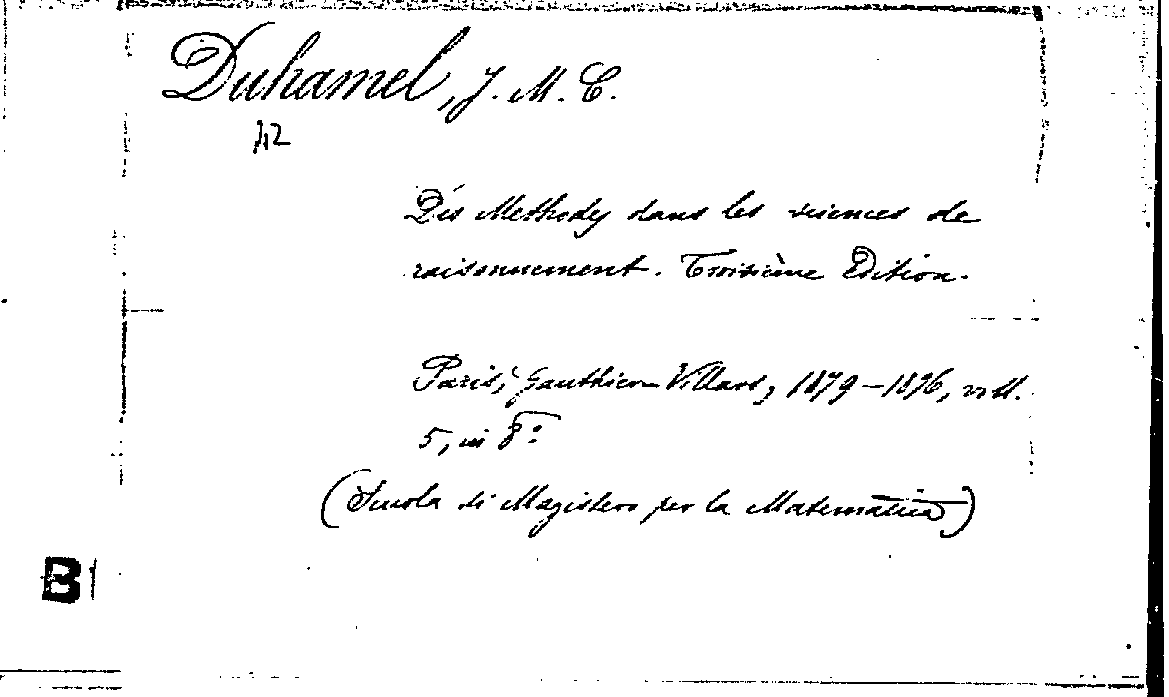 Duhamel, J. M. C.
42
Des Methodes dans les sciences de
raisonnement. Troisième Edition.
Paris, Gauthier-Villars, 1879-1896, voll.
5, in 8º
(Scuola di Magistero per la Matematica)
B